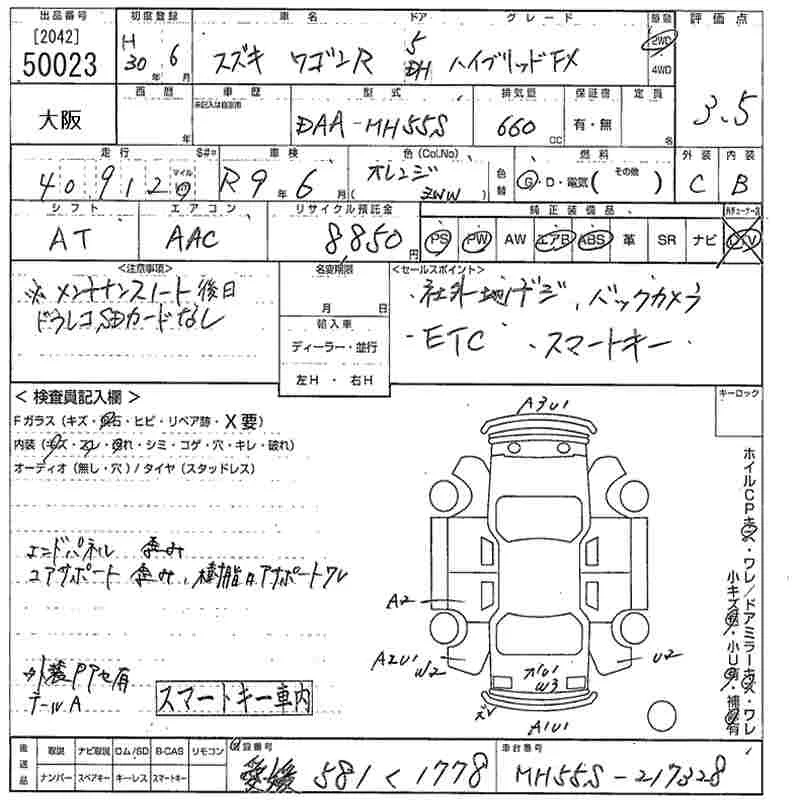 出品番号 初度登録 車名 ドア グレード 駆動 評価点
[2042]
50023
H 30年 6月
スズキ ワゴンR
5
DH
ハイブリッドFX
2WD
4WD
3.5
西暦 車歴 型式 排気量 保証書 定員
未記入は自家用
大阪
年
DAA-MH55S
660 CC
有・無
名
走行 S#* 車検 色(Col.No) 燃料 外装 内装
マイル
40912
R9年6月
オレンジ
(ZWW)
色替
G・D・電気( その他 )
C
B
シフト エアコン リサイクル預託金 純正装備品
AT
AAC
8850円
PS PW AW エアB ABS 革 SR ナビ TV
<注意事項>
※メンテナンスノート後日
ドラレコ,SDカードなし
名変期限
月 日
輸入車
ディーラー・並行
左H・右H
<セールスポイント>
・社外地デジ、バックカメラ
・ETC ・スマートキー・
キーロック
<検査員記入欄>
Fガラス(キズ・飛石・ヒビ・リペア跡・X要)
内装(キズ・スレ・汚れ・シミ・コゲ・穴・キレ・破れ)
オーディオ(無し・穴)/タイヤ(スタッドレス)
エンドパネル 歪み
コアサポート 歪み、樹脂コアサポートワレ
外装PPセ有
テールA
スマートキー車内
A3U1
A2
A2U1
W2
U2
W3
A1U1
ホイルCPキズ・ワレ/ドアミラーキズ・ワレ
小キズ有・小U有・補修有
後送品
取説 ナビ取説 ロム/SD B-CAS リモコン
ナンバー スペアキー キーレス スマートキー
登録番号
愛媛 581 く 1778
車台番号
MH55S-217328